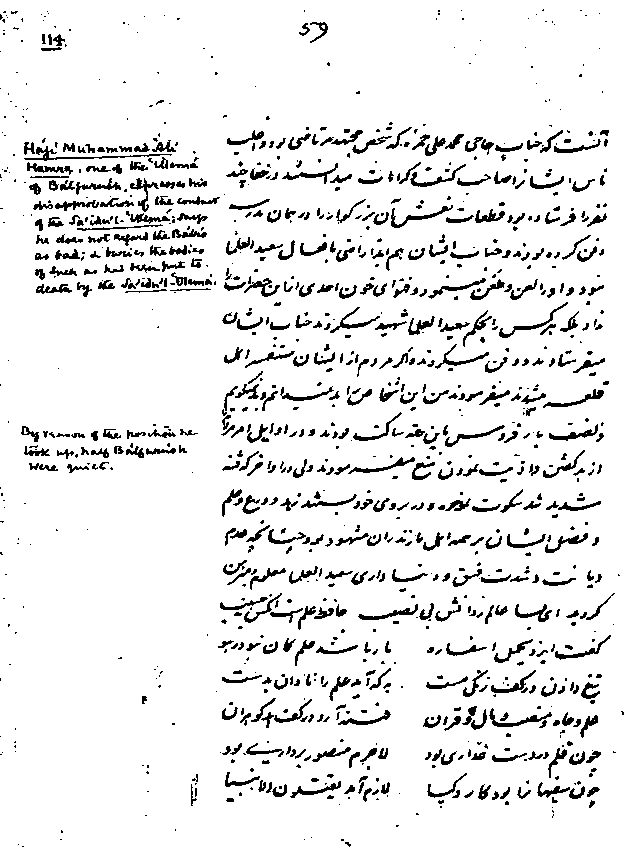 59
114.
Hájí Muhammad 'Alí
Hamza, one of the 'Ulemá
of Bálfurúsh, expresses his
disapprobation of the conduct
of the Sa'ídu'l-'Ulemá; says
he does not regard the Bábís
as bad; & buries the bodies
of such as had been put to
death by the Sa'ídu'l-'Ulemá.
By reason of the position he
took up, half Bálfurúsh
were quiet.
آنست که جناب حاجی محمد علی حمزه که شخص مجتهد مرتاضی بود و اغلب
ناس ایشانرا صاحب کشف و کرامات میدانستند در خفا چند
نفر را فرستاده بود قطعات نعش آن بزرگوار را در همان مدرسه
دفن کرده بودند و جناب ایشان هم ابدا راضی بافعال سعید العلما
نبود و او را لعن و طعن مینمود و فتوای خون احدی از این حضرات را
نداد بلکه هر کس را بحکم سعید العلما شهید میکردند جناب ایشان
میفرستادند و دفن میکردند و اگر مردم از ایشان مستفسر اهل
قلعه میشدند میفرمودند من این اشخاص را بد نمیدانم و بد نمیگویم
و نصف بارفروش باین جهت ساکت بودند و در اوایل امر مردم را
از بد گفتن و اذیت نمودن منع میفرمودند ولی در اواخر که فتنه
شدید شد سکوت نموده و در بروی خود بستند زهد و ورع و علم
و فضل ایشان بر همه اهل مازندران مشهود بود چنانچه عدم
دیانت و شدت فسق و دنیا داری سعید العلما معلوم
گردید ای بسا عالم ز دانش بی نصیب حافظ علم است آنکس نی حبیب
گفت ایزد یحمل اسفاره بار باشد علم کان نبود ز هو
تیغ دادن در کف زنگی مست به که آید علم را نادان بدست
علم و جاه و منصب و مال و قران فتنه آرد در کف بدگوهران
چون قلم در دست غداری بود لاجرم منصور بر داری بود
چون سفیهان را بود کار و کیا لازم آمد یقتلون الانبیا